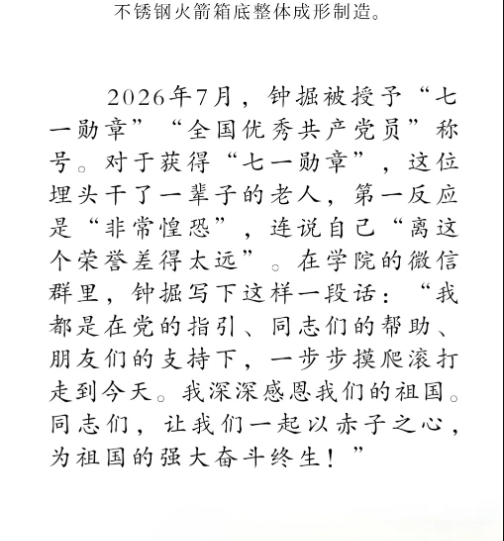 不锈钢火箭箱底整体成形制造。
2026年7月，钟掘被授予“七
一勋章”“全国优秀共产党员”称
号。对于获得“七一勋章”，这位
埋头干了一辈子的老人，第一反应
是“非常惶恐”，连说自己“离这
个荣誉差得太远”。在学院的微信
群里，钟掘写下这样一段话：“我
都是在党的指引、同志们的帮助、
朋友们的支持下，一步步摸爬滚打
走到今天。我深深感恩我们的祖国。
同志们，让我们一起以赤子之心，
为祖国的强大奋斗终生！”